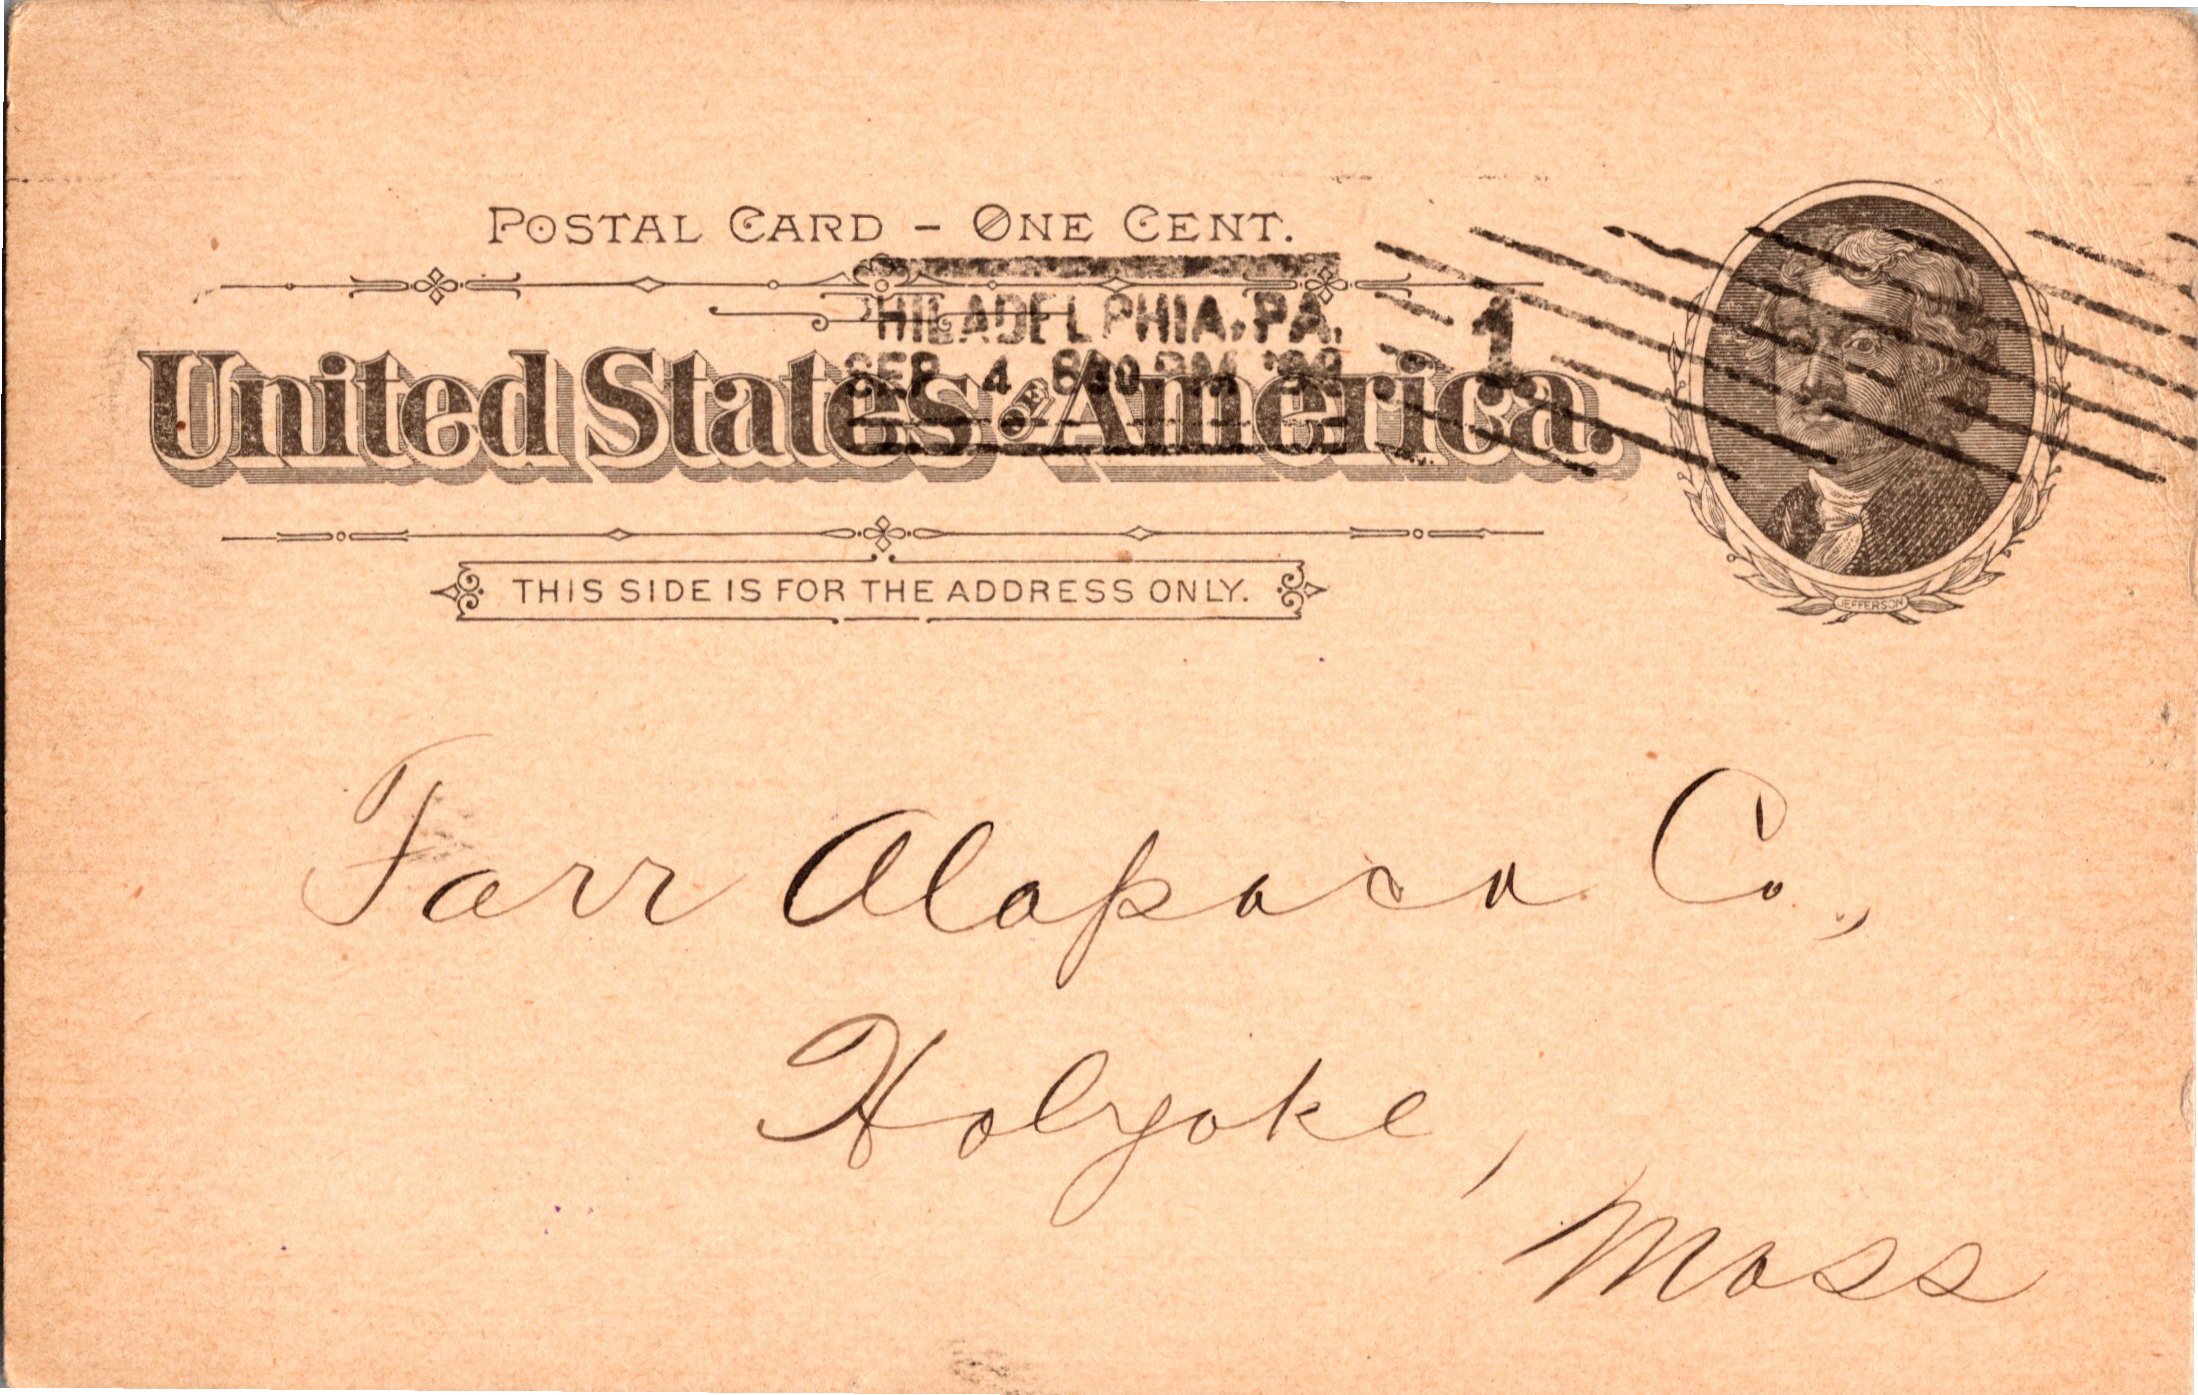 POSTAL CARD – ONE CENT.
PHILADELPHIA, PA. 1
SEP 4 PM
United States OF America.
THIS SIDE IS FOR THE ADDRESS ONLY.
JEFFERSON
Farr Alapaca Co.,
Holyoke,
Mass